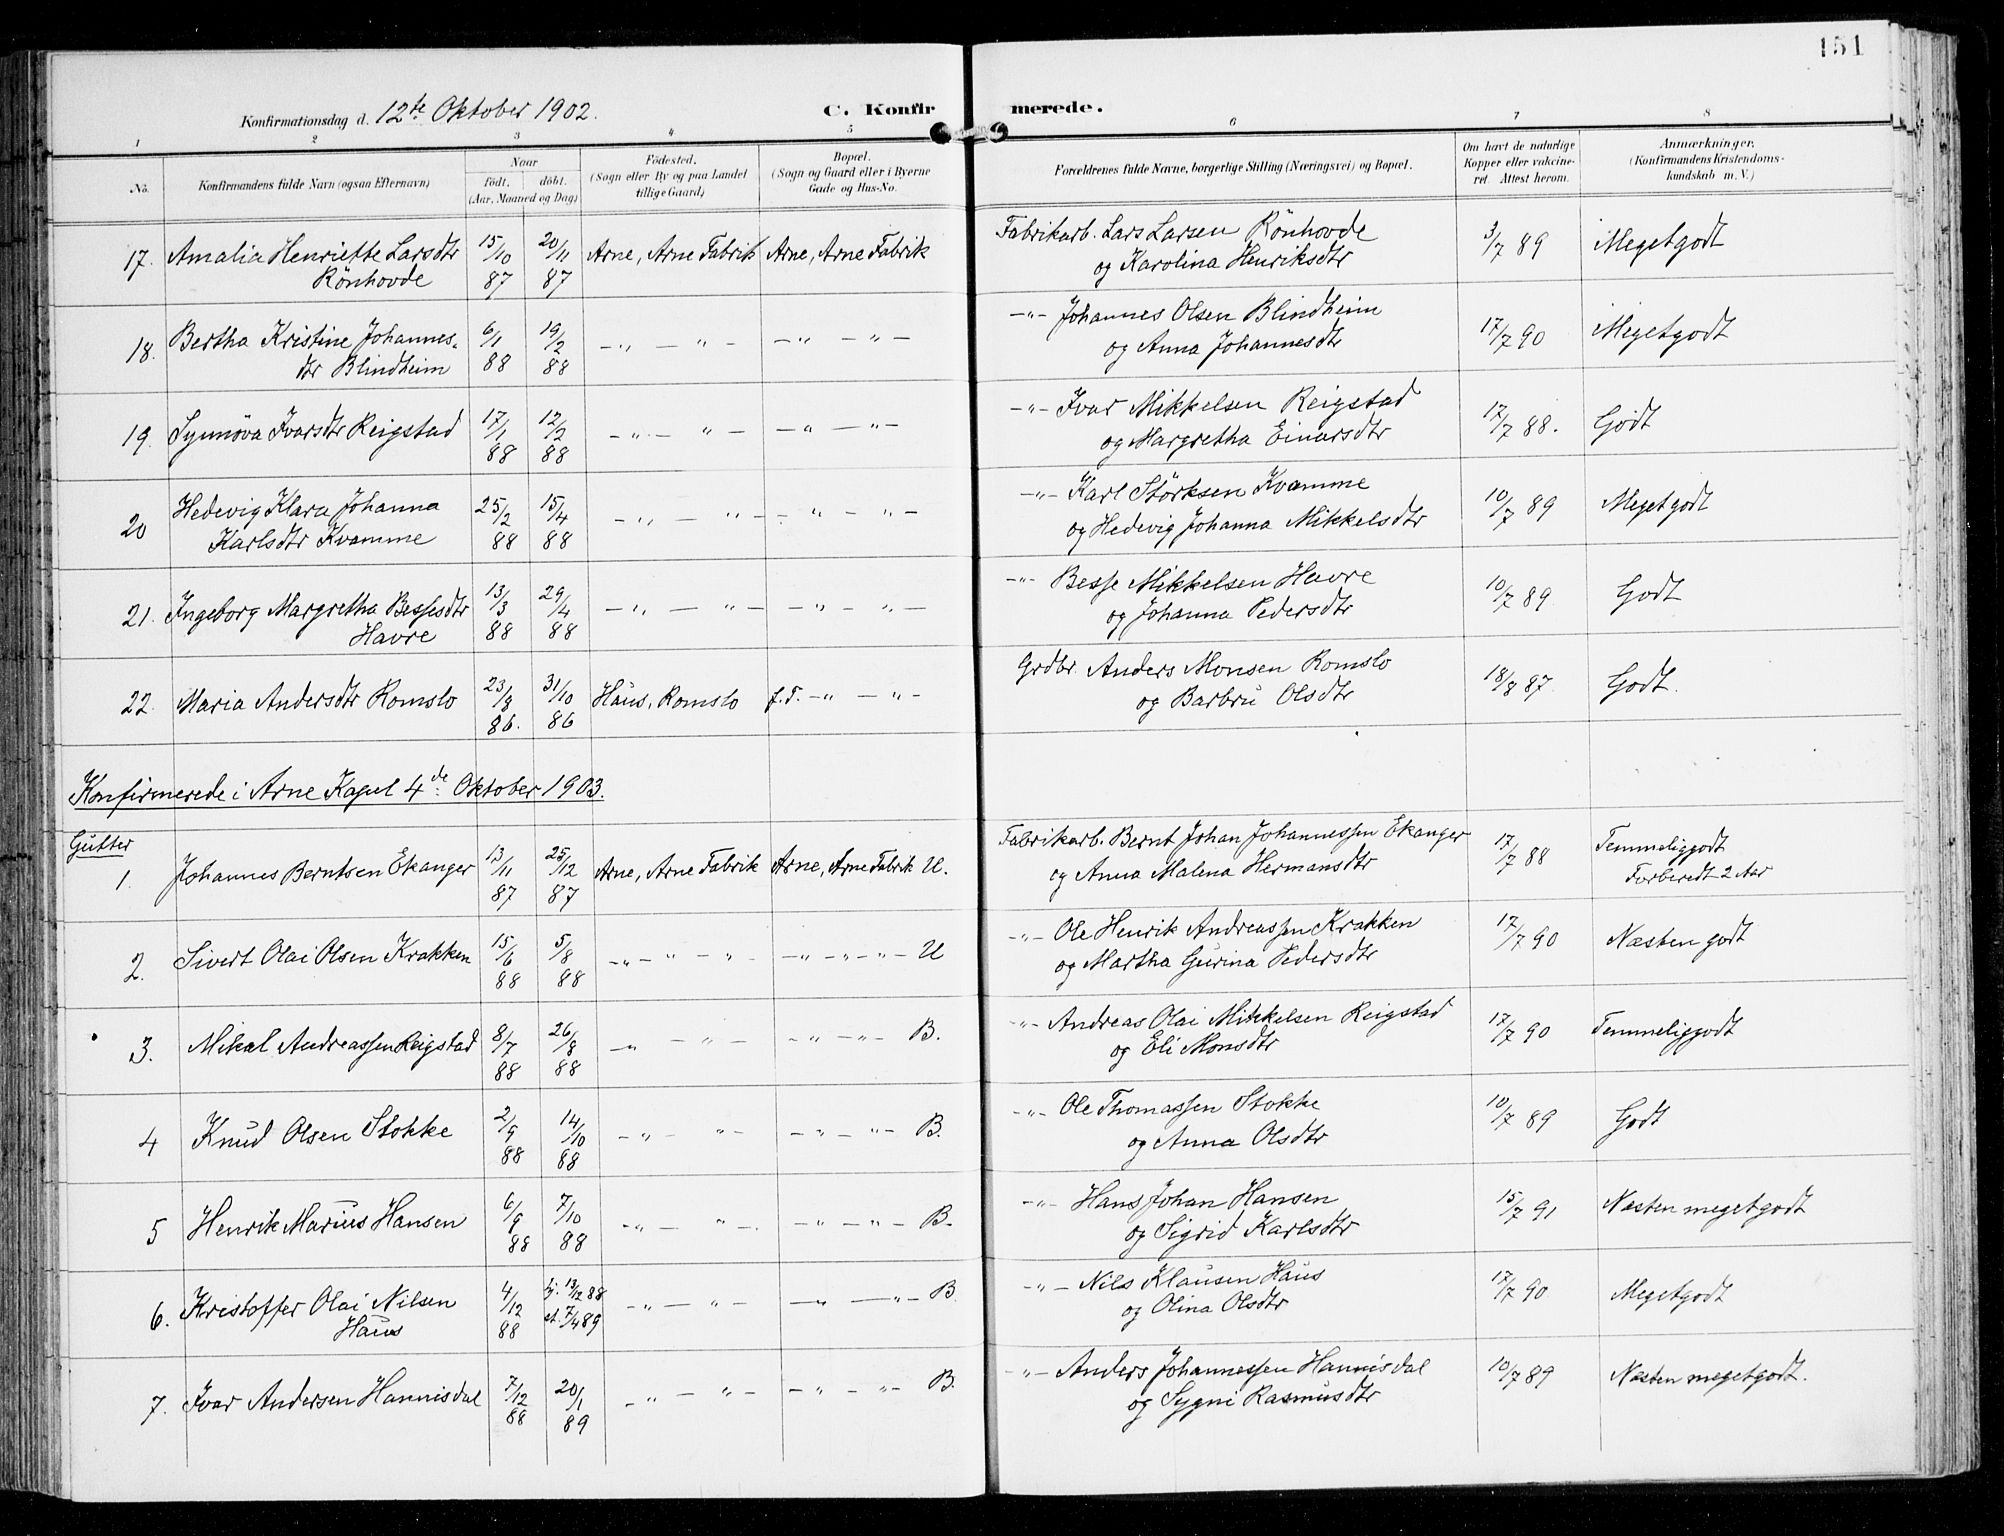 151
Konfirmationsdag d. 12te Oktober 1902.
C. Konfirmerede.
1 2 3 4 5 6 7 8
No. Konfirmandens fulde Navn (ogsaa Efternavn) Naar født, døbt. (Aar, Maaned og Dag) Fødested. (Sogn eller By og paa Landet tillige Gaard) Bopæl. (Sogn og Gaard eller i Byerne Gade og Hus-No. Forældrenes fulde Navne, borgerlige Stilling (Næringsvei) og Bopæl. Om havt de naturlige Kopper eller vakcineret. Attest herom. Anmærkninger. (Konfirmandens Kristendomskundskab m. V.)
17. Amalia Henriette Larsdtr 15/10 20/11 Arne, Arne Fabrik Arne, Arne Fabrik Fabrikarb. Lars Larsen Rönhovde 3/7 89 Megetgodt
Rönhovde 87 87 og Karolina Henriksdtr
18. Bertha Kristine Johannes- 6/1 19/2 -"- "- -"- "- -"- Johannes Olsen Blindheim 17/7 90 Megetgodt
dtr Blindheim 88 88 og Anna Johannesdtr
19. Synnöva Ivarsdtr Reigstad 17/1 12/2 -"- "- -"- "- -"- Ivar Mikkelsen Reigstad 17/7 88. Godt
88 88 og Margretha Einarsdtr
20 Hedevig Klara Johanna 25/2 15/4 -"- "- -"- "- -"- Karl Störksen Kvamme 10/7 89 Megetgodt
Karlsdtr Kvamme 88 88 og Hedevig Johanna Mikkelsdtr
21. Ingeborg Margretha Bessesdtr 13/3 29/4 -"- "- -"- "- -"- Besse Mikkelsen Havre 10/7 89 Godt
Havre 88 88 og Johanna Pedersdtr
22. Maria Andersdtr Romslo 23/8 31/10 Haus, Romslo f.T. -"- "- Grdbr. Anders Monsen Romslo 18/8 87. Godt.
86. 86 og Barbru Olsdtr
Konfirmerede i Arne Kapel 4de Oktober 1903.
Gutter
1. Johannes Berntsen Ekanger 13/11 25/12 Arne, Arne Fabrik Arne, Arne Fabrik U. Fabrikarb. Bernt Johan Johannessen Ekanger 17/7 88 Temmeliggodt
87 87 og Anna Malena Hermansdtr Forberedt 2 Aar
2. Sivert Olai Olsen Krakken 15/6 5/8 -"- "- "- -"- "- "- U -"- Ole Henrik Andreassen Krakken 17/7 90 Næsten godt
88 88 og Martha Gurina Pedersdtr
3. Mikal Andreassen Reigstad 8/7 26/8 -"- "- "- -"- "- B. -"- Andreas Olai Mikkelsen Reigstad 17/7 90 Temmeliggodt
88 88 og Eli Monsdtr
4 Knud Olsen Stokke 2/9 14/10 -"- "- -"- "- B. -"- Ole Thomassen Stokke 10/7 89 Godt
88 88 og Anna Olsdtr
5 Henrik Marius Hansen 6/9 7/10 -"- "- -"- "- B- -"- Hans Johan Hansen 15/7 91 Næsten megetgodt
88 88 og Sigrid Karlsdtr
6. Kristoffer Olai Nilsen 4/12 hj. 13/12 88 -"- "- -"- "- B. -"- Nils Klausen Haus 17/7 90 Megetgodt
Haus 88 st. 7/4 89 og Olina Olsdtr
7. Ivar Andersen Hannisdal 7/12 20/1 -"- "- -"- "- B. -"- Anders Johannessen Hannisdal 10/7 89 Næsten megetgodt.
88 89 og Sygni Rasmusdtr